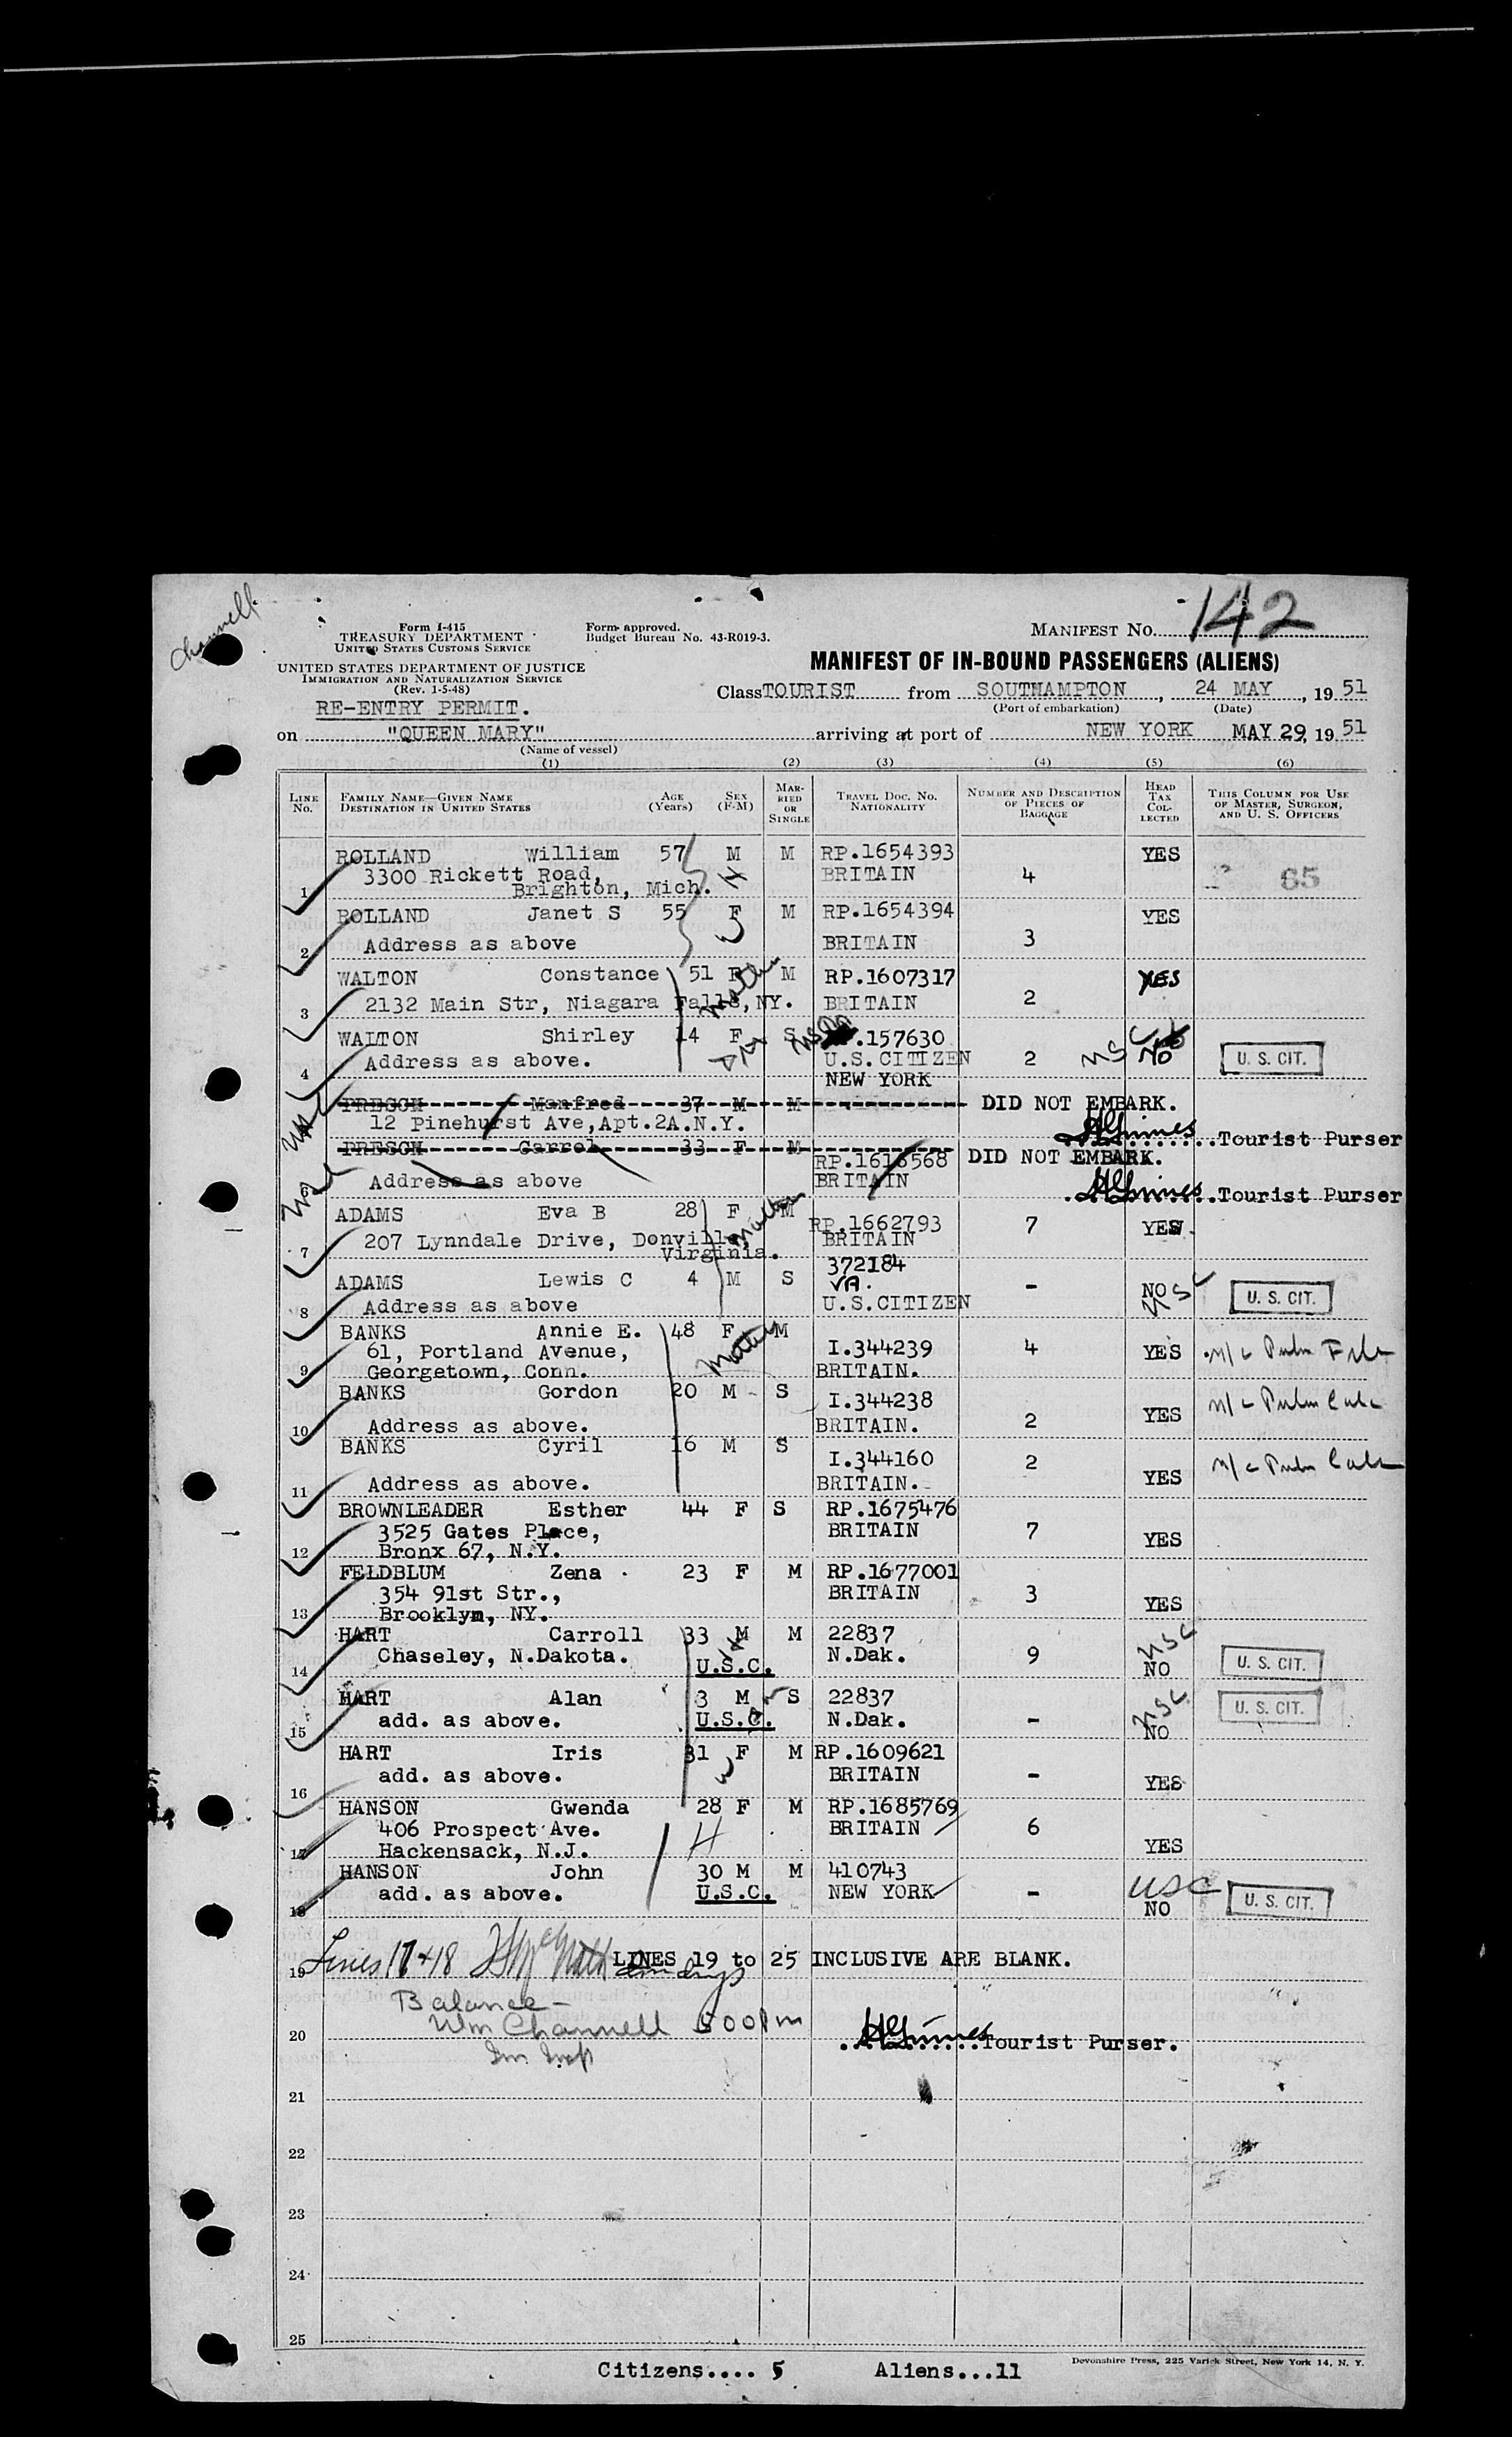 Channell
142
Form I-415
TREASURY DEPARTMENT
UNITED STATES CUSTOMS SERVICE
Form approved.
Budget Bureau No. 43-R019-3.
MANIFEST No.
UNITED STATES DEPARTMENT OF JUSTICE
IMMIGRATION AND NATURALIZATION SERVICE
(Rev. 1-5-48)
MANIFEST OF IN-BOUND PASSENGERS (ALIENS)
RE-ENTRY PERMIT.
Class TOURIST from SOUTHAMPTON, 24 MAY, 19 51
(Port of embarkation) (Date)
on "QUEEN MARY" arriving at port of NEW YORK MAY 29, 19 51
(Name of vessel)
(1) (2) (3) (4) (5) (6)
LINE NO. FAMILY NAME—GIVEN NAME DESTINATION IN UNITED STATES AGE (Years) SEX (F-M) MARRIED OR SINGLE TRAVEL DOC. NO. NATIONALITY NUMBER AND DESCRIPTION OF PIECES OF BAGGAGE HEAD TAX COLLECTED THIS COLUMN FOR USE OF MASTER, SURGEON, AND U. S. OFFICERS
ROLLAND William 57 M M RP.1654393 YES
3300 Rickett Road, BRITAIN 4 65
1 Brighton, Mich. H
ROLLAND Janet S 55 F M RP.1654394 YES
2 Address as above BRITAIN 3
WALTON Constance 51 F M RP.1607317 YES
3 2132 Main Str, Niagara Falls, NY. BRITAIN 2
Mother
WALTON Shirley 14 F S .157630 NO
4 Address as above. U.S.CITIZEN 2 U. S. CIT.
NEW YORK
PRESCH Manfred 37 M M DID NOT EMBARK.
12 Pinehurst Ave,Apt.2A.N.Y. Tourist Purser
PRESCH Carrol 33 F M RP.1616568 DID NOT EMBARK.
6 Address as above BRITAIN Tourist Purser
ADAMS Eva B 28 F M RP.1662793 7 YES
7 207 Lynndale Drive, Donville, BRITAIN
Virginia.
Mother
ADAMS Lewis C 4 M S 372184 VA. - NO USC
8 Address as above U.S.CITIZEN U. S. CIT.
BANKS Annie E. 48 F M I.344239 4 YES
61, Portland Avenue, BRITAIN.
9 Georgetown, Conn.
Mother
BANKS Gordon 20 M S I.344238 2 YES
10 Address as above. BRITAIN.
BANKS Cyril 16 M S I.344160 2 YES
11 Address as above. BRITAIN.
BROWNLEADER Esther 44 F S RP.1675476
3525 Gates Place, BRITAIN 7 YES
12 Bronx 67, N.Y.
FELDBLUM Zena 23 F M RP.1677001
354 91st Str., BRITAIN 3 YES
13 Brooklyn, NY.
HART Carroll 33 M M 22837 USC
Chaseley, N.Dakota. N.Dak. 9 NO U. S. CIT.
14 U.S.C.
HART Alan 3 M S 22837 USC U. S. CIT.
15 add. as above. U.S.C. N.Dak. - NO
HART Iris 31 F M RP.1609621
16 add. as above. BRITAIN - YES
HANSON Gwenda 28 F M RP.1685769
406 Prospect Ave. H BRITAIN 6 YES
17 Hackensack, N.J.
HANSON John 30 M M 410743 USC
18 add. as above. U.S.C. NEW YORK - NO U. S. CIT.
19 Lines 17+18 LINES 19 to 25 INCLUSIVE ARE BLANK.
Balance -
20 Wm Channell 500 Pm Tourist Purser.
Im Insp
21
22
23
24
25
Devonshire Press, 225 Varick Street, New York 14, N. Y.
Citizens.... 5 Aliens...11